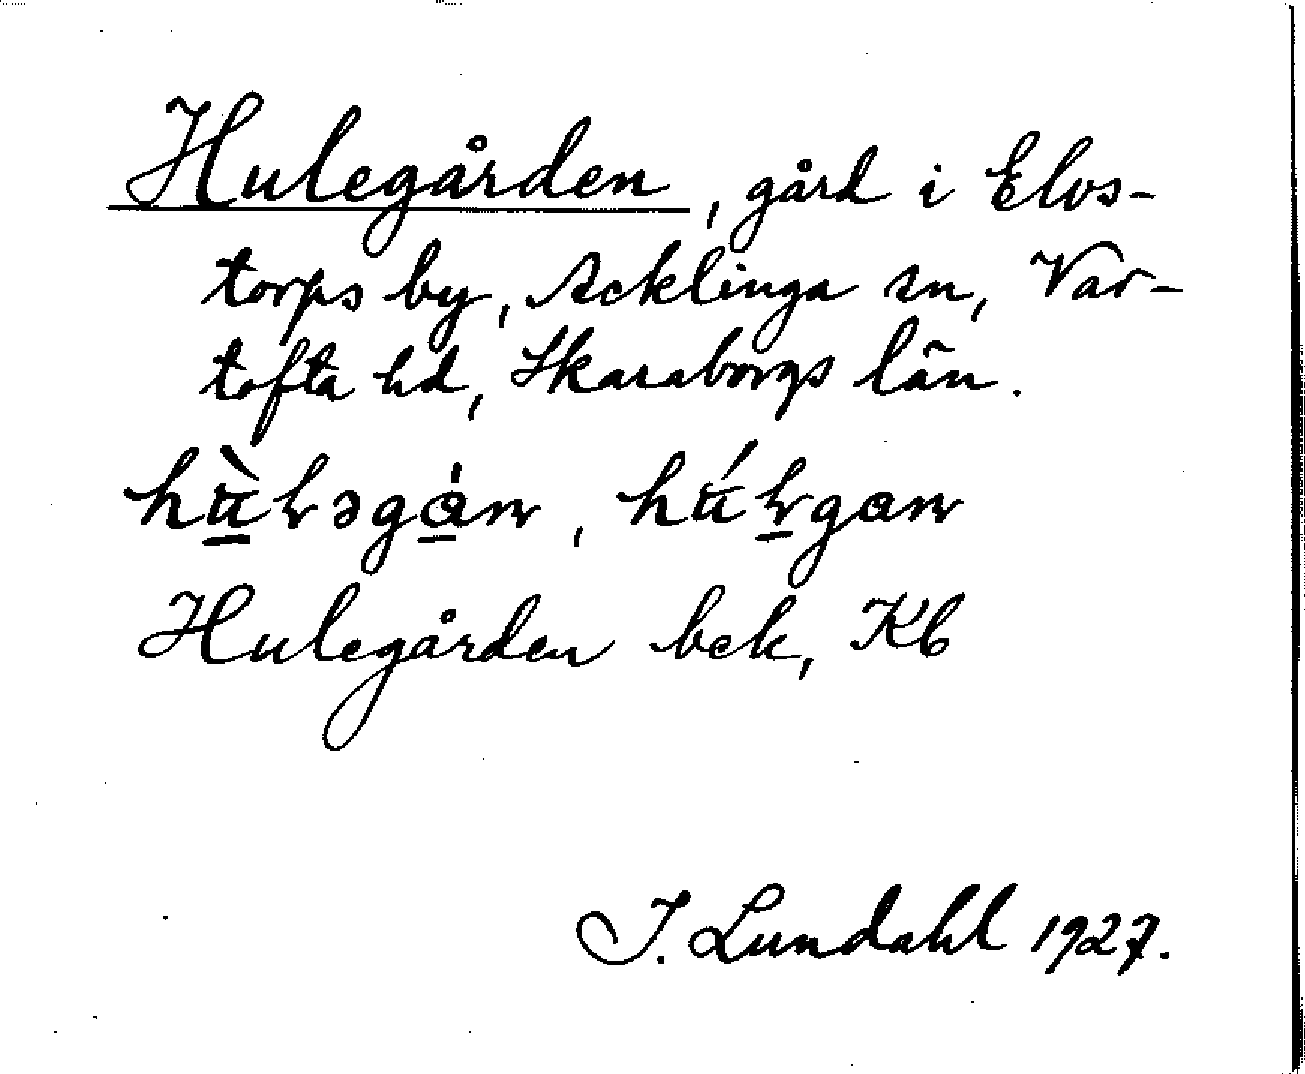 Hulegården, gård i Elvs-
torps by, Acklinga sn, Var-
tofta hd, Skaraborgs län.
Hulegården bek, Kb
I. Lundahl 1927.